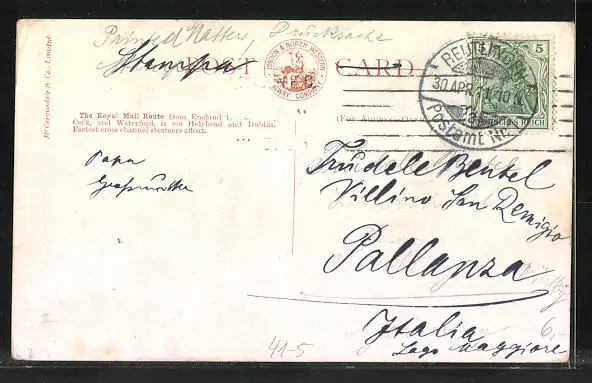 Printed Matters, Drucksache
Stampa
POST CARD
LONDON & NORTH WESTERN
RAILWAY COMPANY
McCorquodale & Co., Limited.
REUTLINGEN
30 APR 11
Postamt Nr
5
DEUTSCHES REICH
The Royal Mail Route from England to
Cork, and Waterford, is via Holyhead and Dublin.
Fastest cross channel steamers afloat.
(For Address Only
Papa
Großmutter
Trudele Beutel
Villino San Remigio
Pallanza
Italia
Lago Maggiore
41-5
6